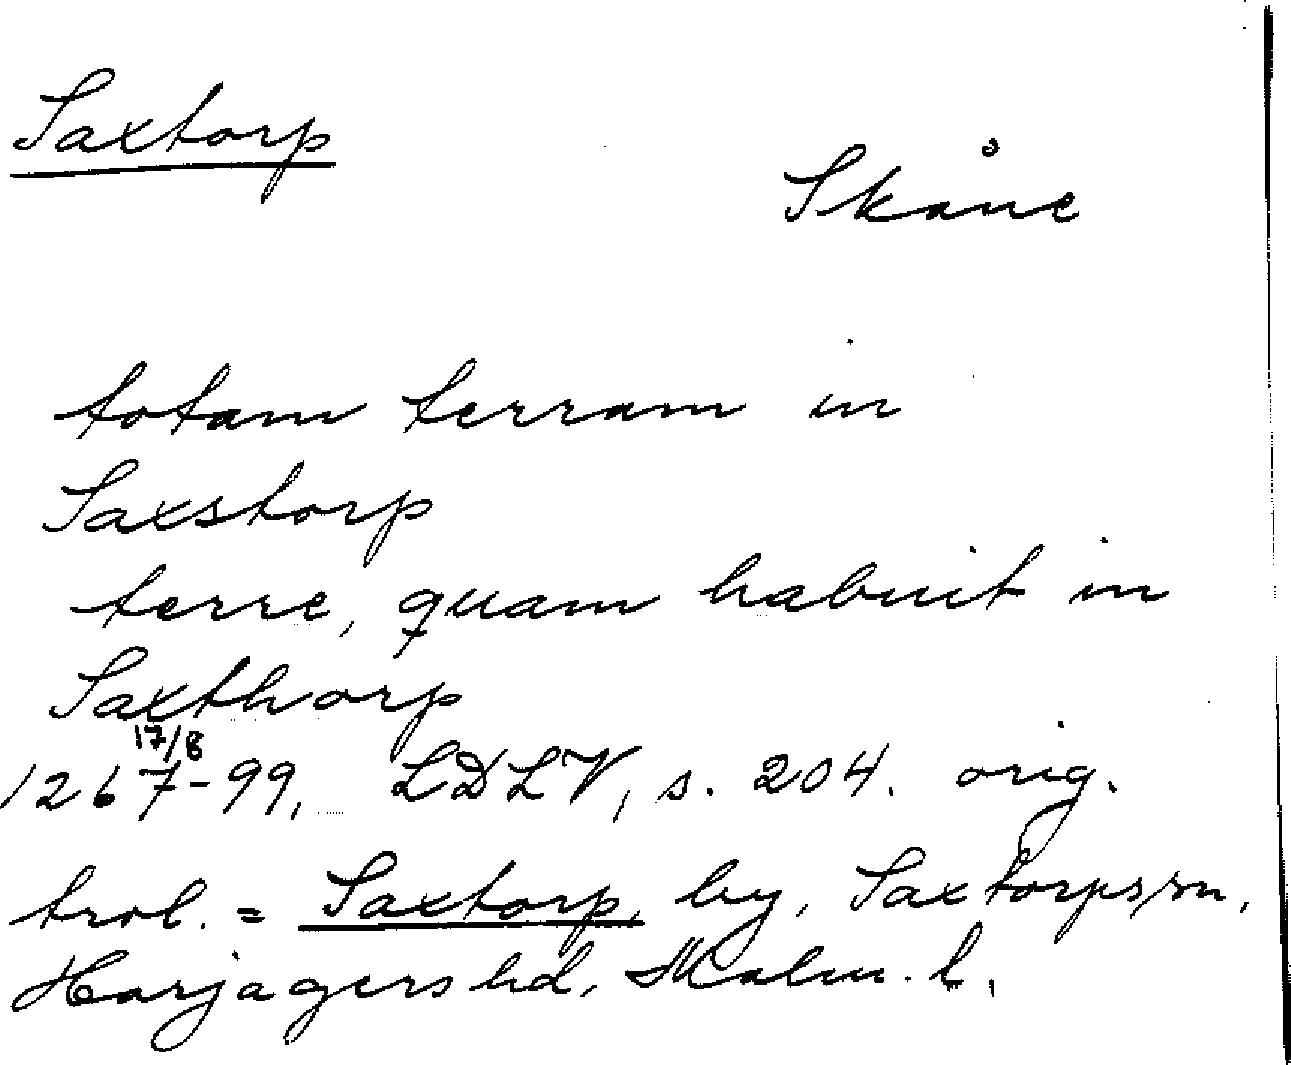 Saxtorp
Skåne
totam terram in
Saxstorp
terre, quam habuit in
Saxthorp
17/8
1267-99, LDLV, s. 204. orig.
trol. = Saxtorp, by, Saxtorps sn,
Harjagers hd, Malm. l.